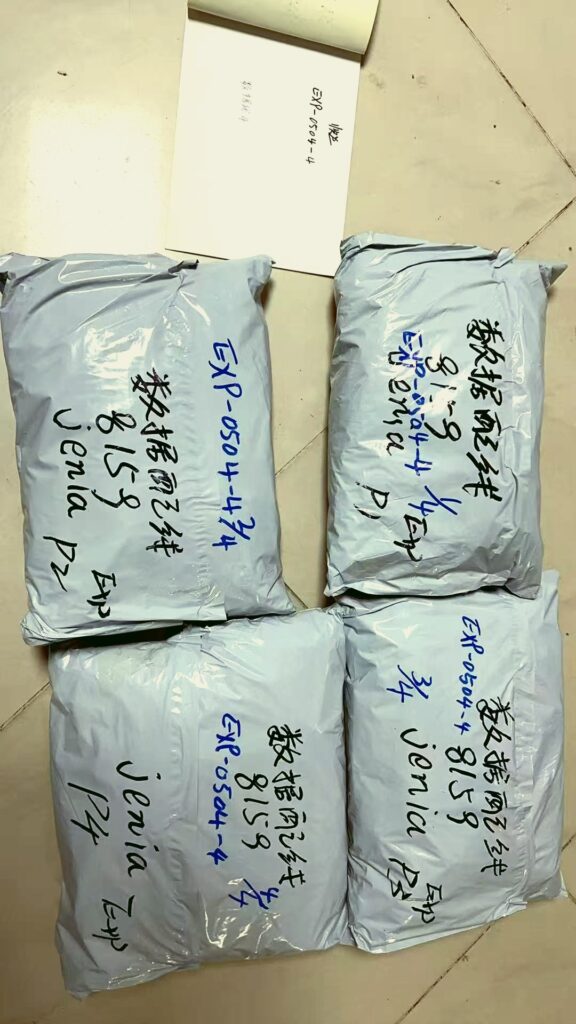 EXP-0504-4
数据配线
8159
jenia
EXP-0504-4 2/4
P2 Exp
数据配线
8159
EXP-0504-4 1/4
jenia
P1 Exp
数据配线
8159
EXP-0504-4
4/4
jenia
P4 Exp
数据配线
EXP-0504-4
8159
3/4
jenia
P3 Exp